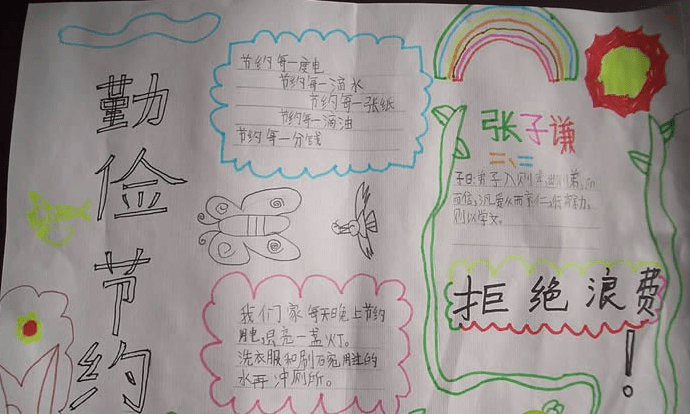 勤俭节约
节约每一度电
节约每一滴水
节约每一张纸
节约每一滴油
节约每一分钱
张子谦
二、三
子曰:弟子入则孝,出则弟,
而信,汎爱从而亲仁,
则以学文。
拒绝浪费!
我们家每天晚上节约
用电,只亮一盏灯。
洗衣服和刷
水再冲厕所。